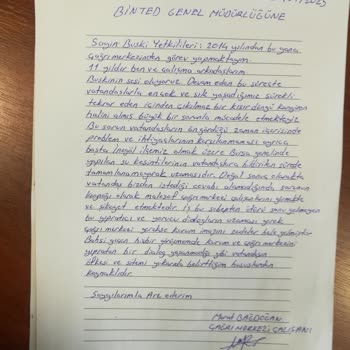 BİNTED GENEL MÜDÜRLÜĞÜNE
Sayın Buski Yetkilileri: 2014 yılından bu yana
çağrı merkezinden görev yapmaktayım
11 yıldır ben ve çalışma arkadaşlarım
Buskinin sesi oluyoruz. Devam eden bu süreçte
vatandaşlarla en çok ve sık yaşadığımız sürekli
tekrar eden içinden çıkılmaz bir kısır döngü kavgası
halini almış büyük bir sorunla mücadele etmekteyiz
Bu sorun vatandaşların öngördüğü zaman içerisinde
problem ve ihtiyaçlarının karşılanmaması ayrıca
başta İnegöl ilçemiz olmak üzere Bursa genelinde
yapılan su kesintilerinin vatandaşlara bildirilen sürede
tamamlanamayarak uzamasıdır. Doğal sonuç olarakta
vatandaş bizden istediği cevabı alamadığında sorunun
kaynağı olarak maalesef çağrı merkezi çalışanlarını görmekte
ve şikayet etmektedir. İş bu sebepten ötürü sonu gelmeyen
bu yıpratıcı ve yorucu dialogların uzaması gerek
çağrı merkezi gerekse kurum imajını zedeler hale gelmiştir
Bahsi geçen hiçbir girişimimde kurum ve çağrı merkezini
yıpratan bir dialog yaşanmadığı gibi vatandaşın
öfkesi ve sitemi yukarıda belirttiğim hususlardan
kaynaklıdır.
Saygılarımla Arz ederim
Murat BAĞDOĞAN
ÇAĞRI MERKEZİ ÇALIŞANI